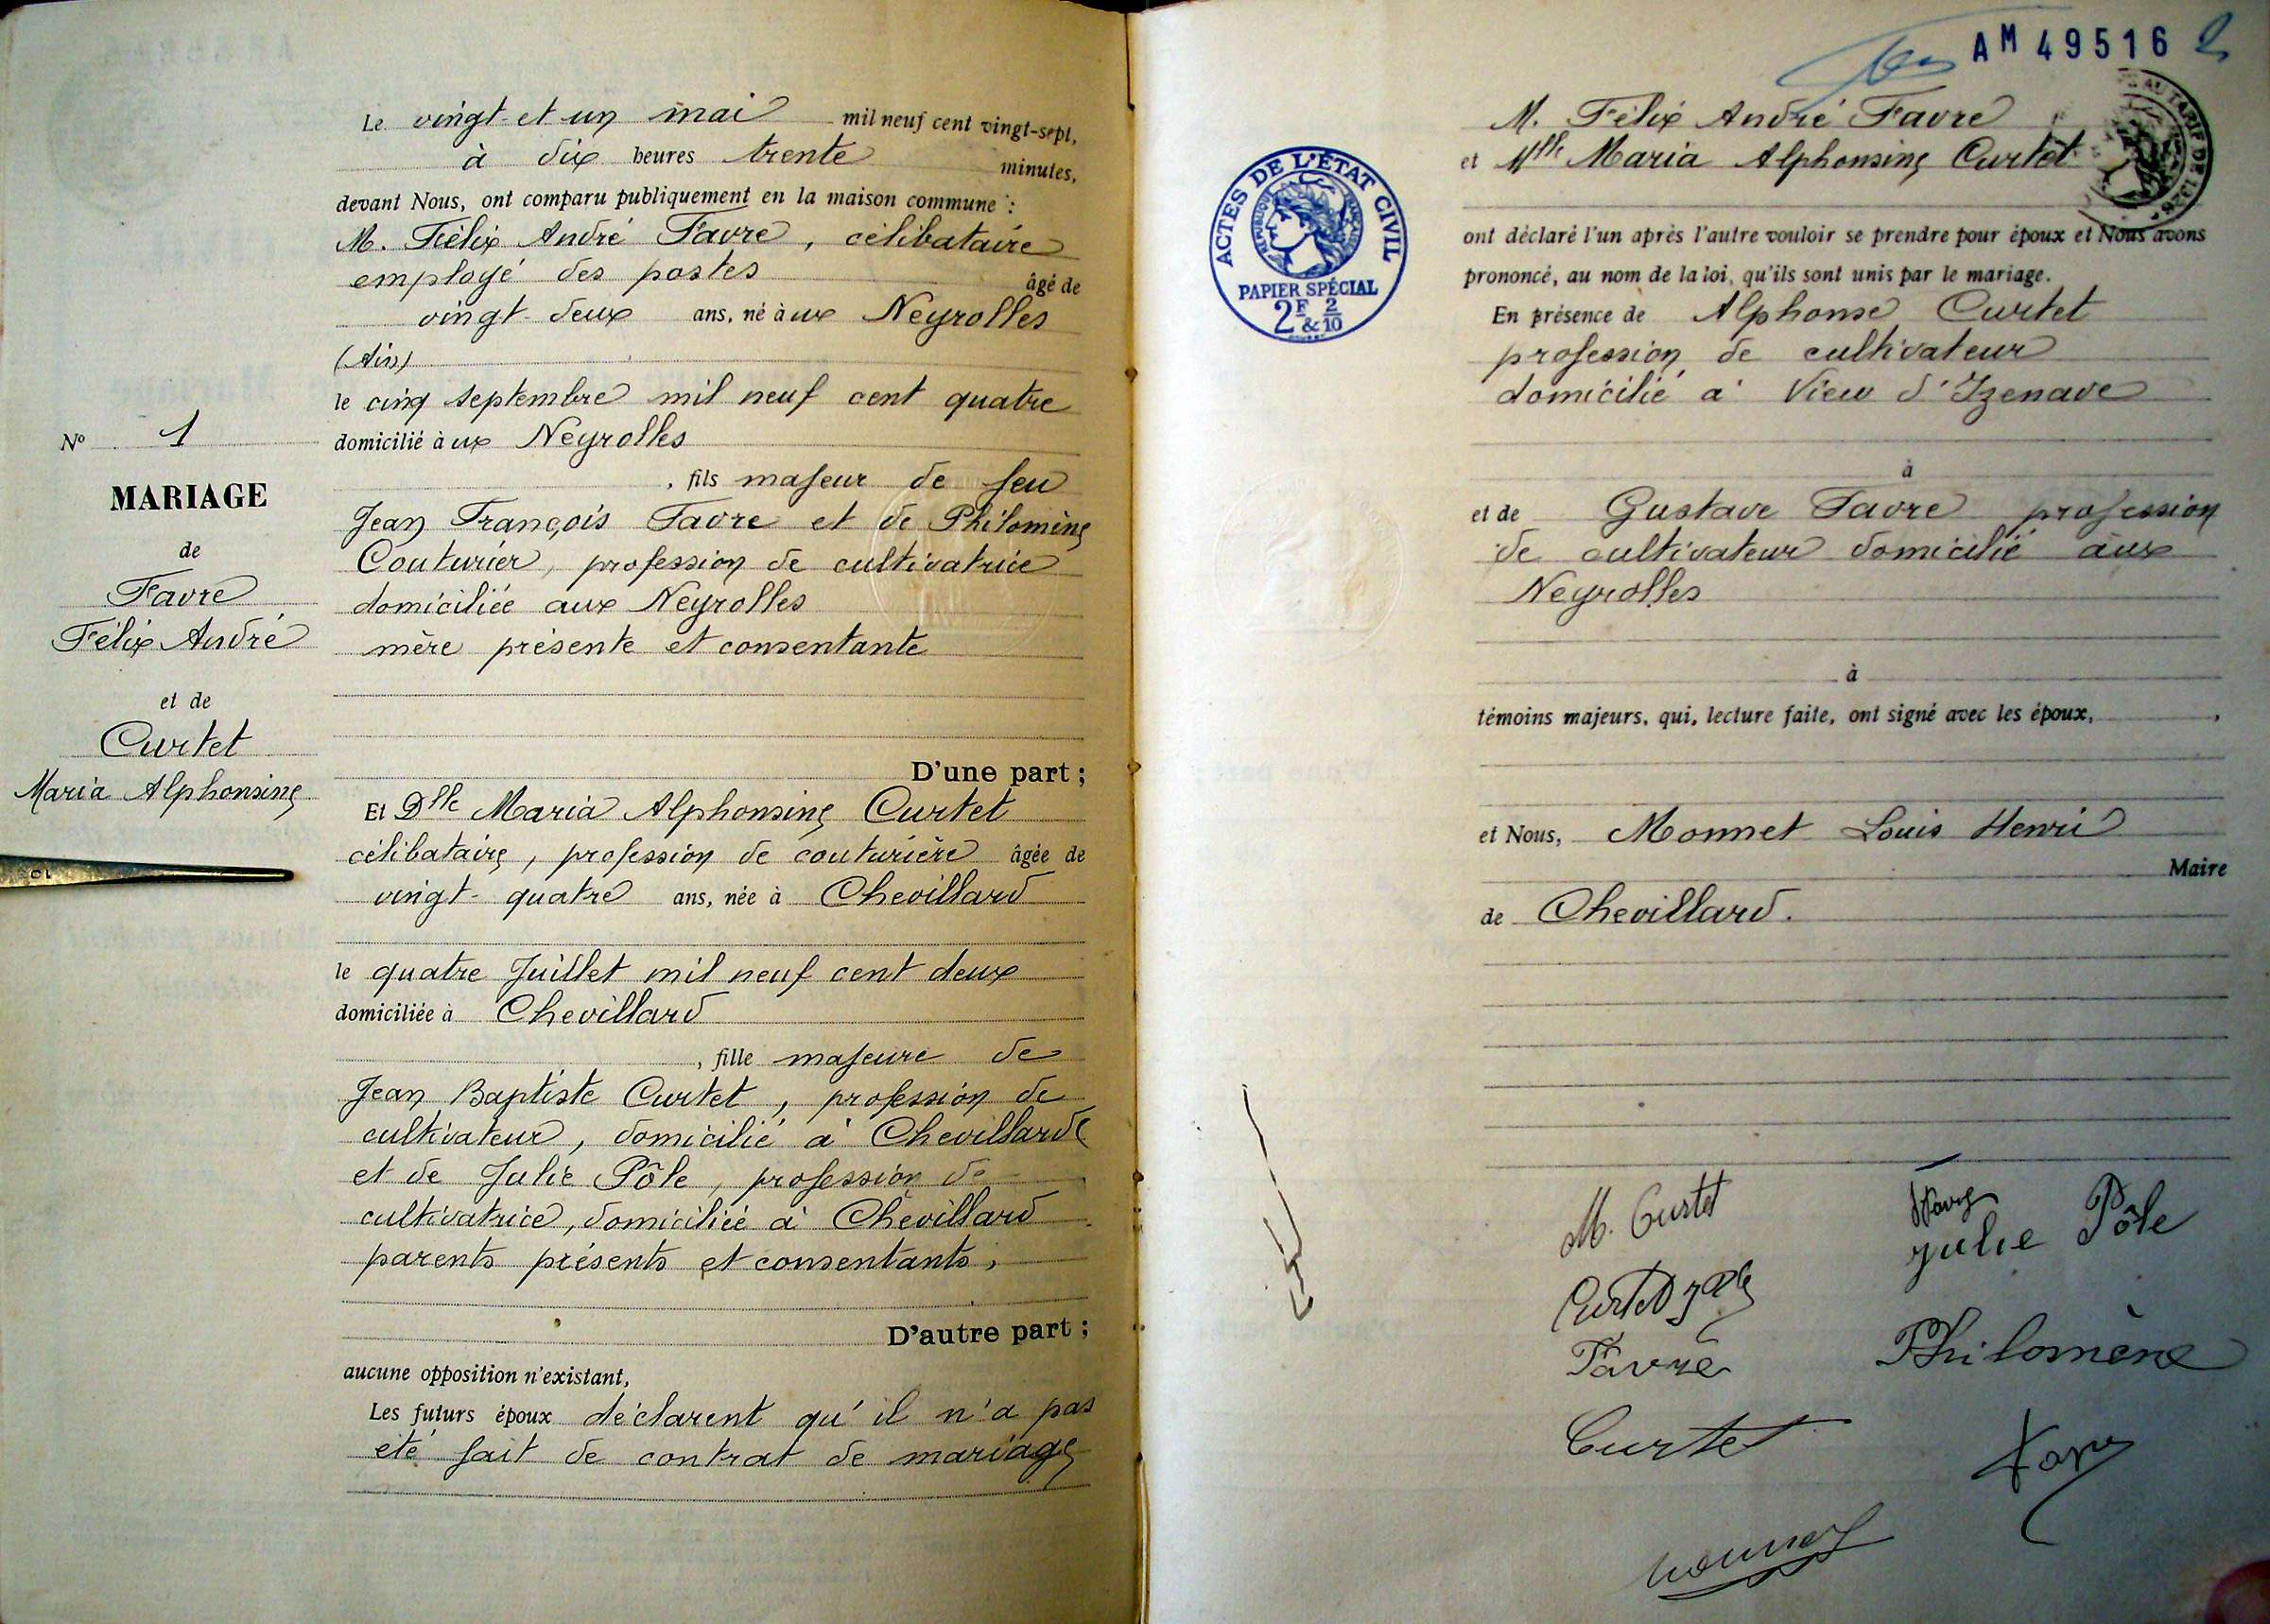 Le vingt-et un mai mil neuf cent vingt-sept,
à dix heures trente minutes,
devant Nous, ont comparu publiquement en la maison commune :
M. Félix André Favre, célibataire
employé des postes âgé de
vingt-deux ans, né àux Neyrolles
(Ain)
le cinq septembre mil neuf cent quatre
domicilié àux Neyrolles
, fils majeur de feu
Jean François Favre et de Philomène
Couturier, profession de cultivatrice
domiciliée aux Neyrolles
mère présente et consentante
D'une part ;
Et Dlle Maria Alphonsine Curtet
célibataire, profession de couturière âgée de
vingt-quatre ans, née à Chevillard
le quatre Juillet mil neuf cent deux
domiciliée à Chevillard
, fille majeure de
Jean Baptiste Curtet, profession de
cultivateur, domicilié à Chevillard
et de Julie Pôle, profession de
cultivatrice, domiciliée à Chevillard
parents présents et consentants,
D'autre part ;
aucune opposition n'existant,
Les futurs époux déclarent qu'il n'a pas
été fait de contrat de mariage
No 1
MARIAGE
de
Favre
Félix André
et de
Curtet
Maria Alphonsine
AM 49516
M. Félix André Favre
et Mlle Maria Alphonsine Curtet
ont déclaré l'un après l'autre vouloir se prendre pour époux et Nous avons
prononcé, au nom de la loi, qu'ils sont unis par le mariage.
En présence de Alphonse Curtet
profession de cultivateur
domicilié à Vieu d'Izenave
à
et de Gustave Favre profession
de cultivateur domicilié aux
Neyrolles
à
témoins majeurs, qui, lecture faite, ont signé avec les époux,
et Nous, Monnet Louis Henri
Maire
de Chevillard.
ACTES DE L'ÉTAT CIVIL
RÉPUBLIQUE FRANÇAISE
PAPIER SPÉCIAL
2F & 2/10
AU TARIF DE
M. Curtet
Favre
Julie Pôle
Curtet
Favre
Philomène
Curtet
Monnet